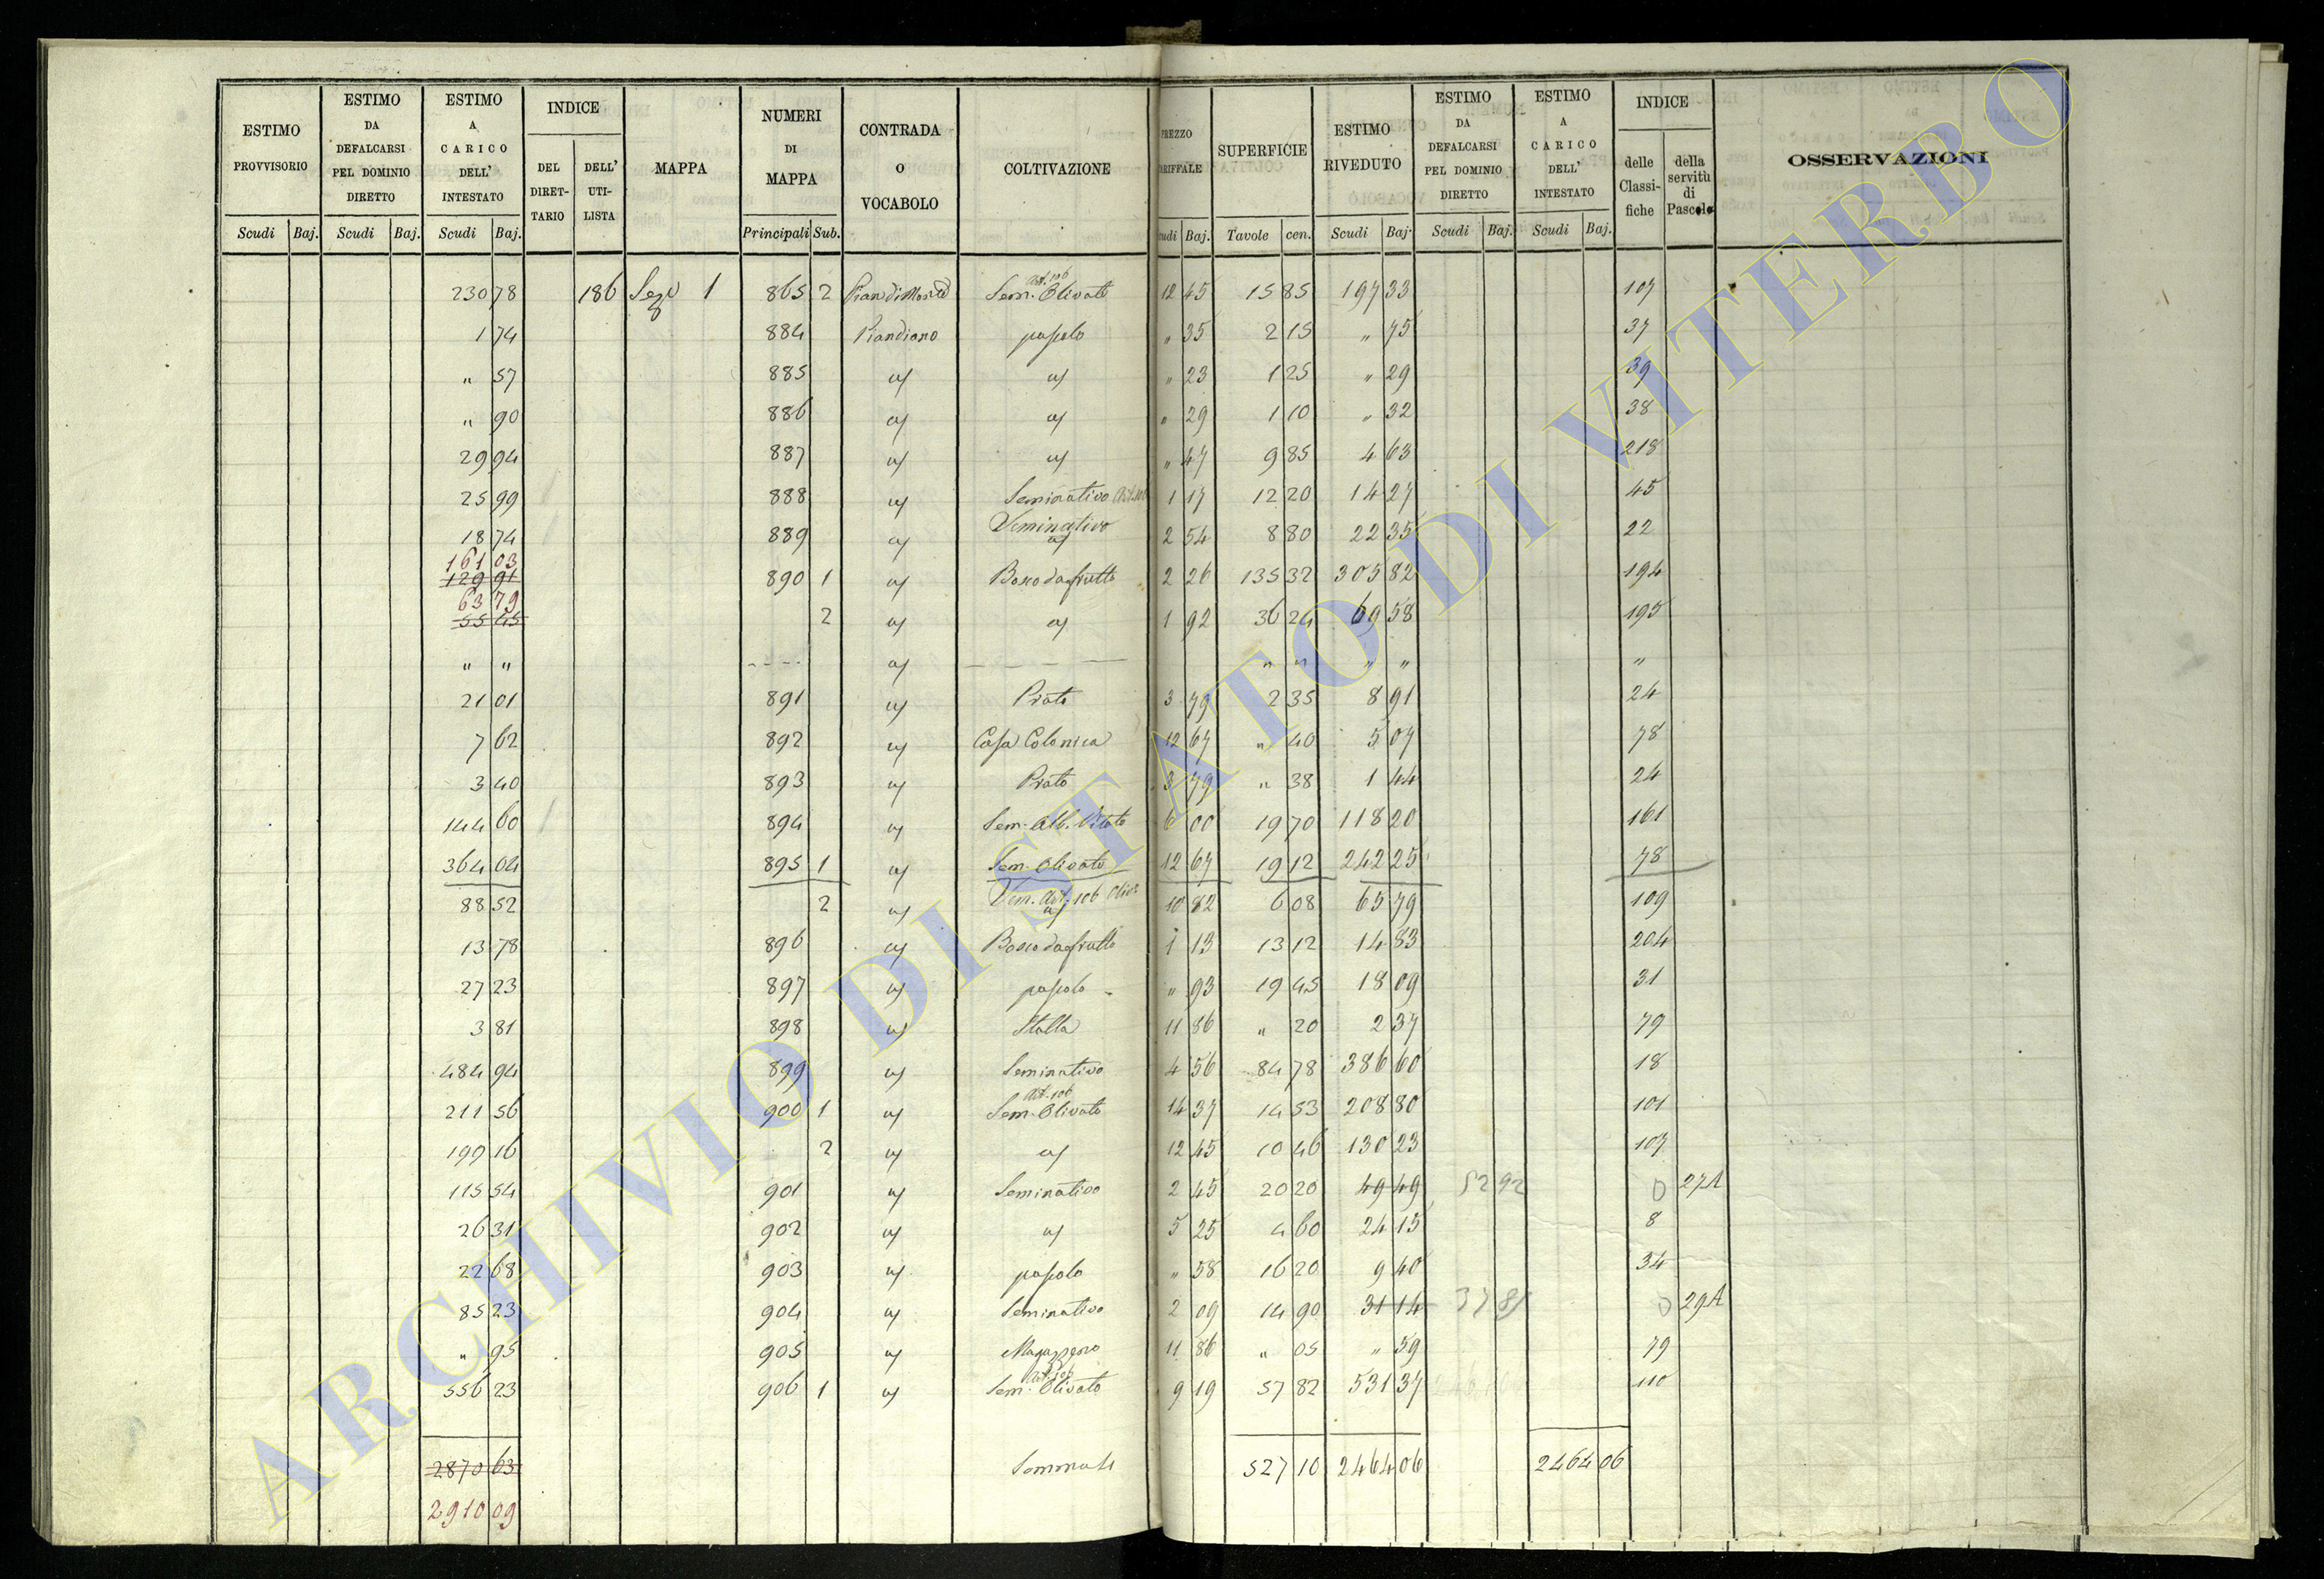 ESTIMO PROVVISORIO | ESTIMO DA DEFALCARSI PEL DOMINIO DIRETTO | ESTIMO A CARICO DELL' INTESTATO | INDICE DEL DIRETTARIO | DELL' UTILISTA | MAPPA | NUMERI DI MAPPA | CONTRADA O VOCABOLO | COLTIVAZIONE | PREZZO | SUPERFICIE | ESTIMO RIVEDUTO | ESTIMO DA DEFALCARSI PEL DOMINIO DIRETTO | ESTIMO A CARICO DELL' INTESTATO | INDICE delle Classifiche | della servitù di Pascolo | OSSERVAZIONI
Scudi | Baj. | Scudi | Baj. | Scudi | Baj. | Principali | Sub. | Baj. | Tavole | cen. | Scudi | Baj. | Scudi | Baj. | Scudi | Baj.
230 78 | 186 | Sez 1 | 865 2 | Sem. Art. 106 Olivato | 12 45 | 15 85 | 197 33 | 107
1 74 | 884 | Piandiano | pascolo | " 35 | 2 15 | " 75 | 37
" 57 | 885 | " 23 | 1 25 | " 29 | 39
" 90 | 886 | " 29 | 1 10 | " 32 | 38
29 94 | 887 | " 47 | 9 85 | 4 63 | 218
25 99 | 888 | Seminativo Art. 106 | 1 17 | 12 20 | 14 27 | 45
18 74 | 889 | Seminativo | 2 54 | 8 80 | 22 35 | 22
161 03
129 91 | 890 1 | Bosco da frutto | 2 26 | 135 32 | 305 82 | 194
63 79
55 45 | 2 | 1 92 | 36 24 | 69 58 | 195
" " | " " | " " | "
21 01 | 891 | Prato | 3 79 | 2 35 | 8 91 | 24
7 62 | 892 | Casa Colonica | 12 67 | " 40 | 5 07 | 78
3 40 | 893 | Prato | 3 79 | " 38 | 1 44 | 24
144 60 | 894 | Sem. Alb. Vitato | 6 00 | 19 70 | 118 20 | 161
364 04 | 895 1 | Sem. Olivato | 12 67 | 19 12 | 242 25 | 78
88 52 | 2 | Sem. Art. 106 Oliv. | 10 82 | 6 08 | 65 79 | 109
13 78 | 896 | Bosco da frutto | 1 13 | 13 12 | 14 83 | 204
27 23 | 897 | pascolo | " 93 | 19 45 | 18 09 | 31
3 81 | 898 | Stalla | 11 86 | " 20 | 2 37 | 79
484 94 | 899 | Seminativo | 4 56 | 84 78 | 386 60 | 18
211 56 | 900 1 | Sem. Art. 106 Olivato | 14 37 | 14 53 | 208 80 | 101
199 16 | 2 | 12 45 | 10 46 | 130 23 | 107
115 54 | 901 | Seminativo | 2 45 | 20 20 | 49 49 | 52 92 | 27A
26 31 | 902 | 5 25 | 4 60 | 24 15 | 8
22 68 | 903 | pascolo | " 58 | 16 20 | 9 40 | 34
85 23 | 904 | Seminativo | 2 09 | 14 90 | 31 14 | 29A
" 95 | 905 | Magazzeno | 11 86 | " 05 | " 59 | 79
556 23 | 906 1 | Sem. Art. 106 Olivato | 9 19 | 57 82 | 531 37 | 110
2870 63 | Sommate | 527 10 | 2464 06 | 2464 06
2910 09
ARCHIVIO DI STATO DI VITERBO